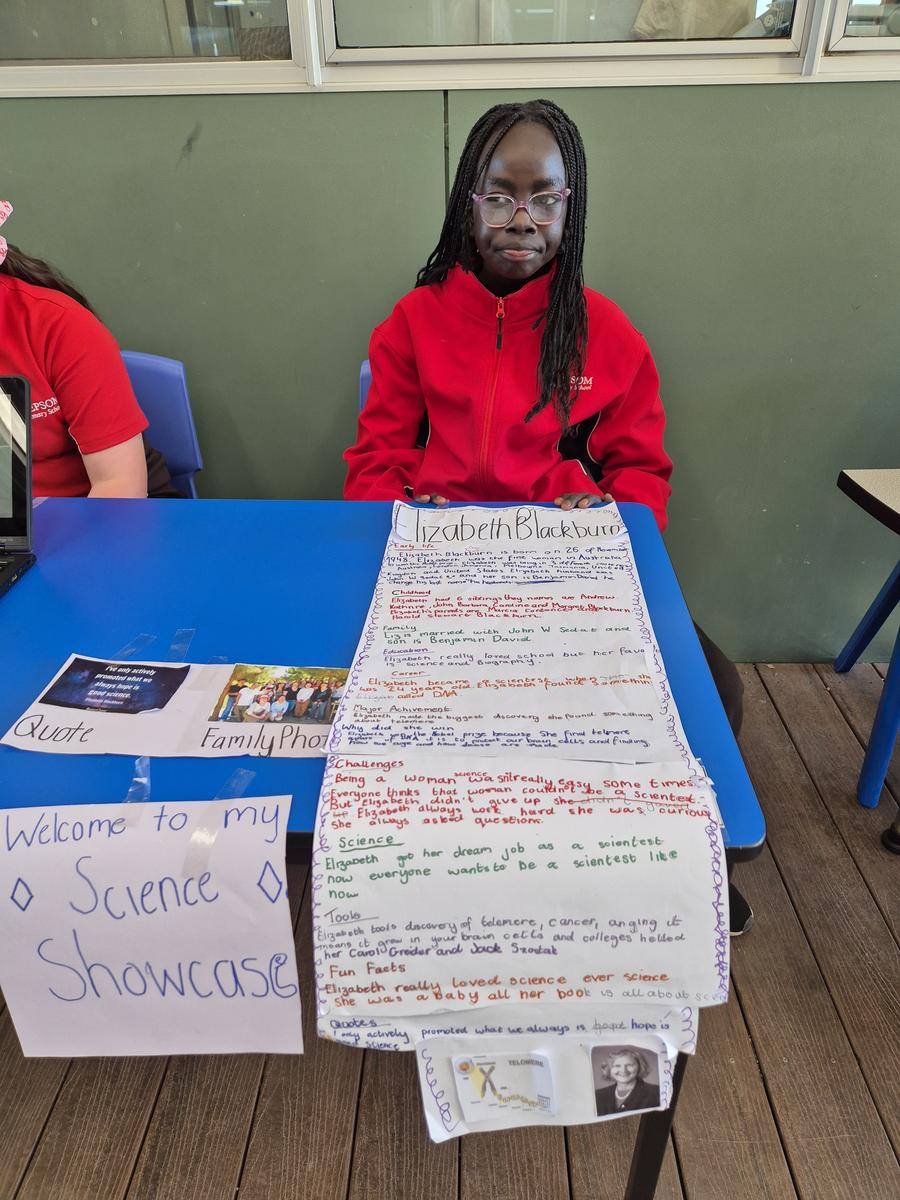 EPSOM
PSOM
Elizabeth Blackburn
Early life
Elizabeth Blackburn is born on 26 of November
1948 Elizabeth was the first woman in Australia
England and United States
Childhood
Elizabeth had 6 sibings they names are Andrew
Kathrire, John Barbura, Caroline and Margret Blackburn
Elizabeth's parents are Marcia Constance
Harold Stewart Blackburn.
Family
Liz is married with John W Sedat and
son is Benjamin David
Education
Elizabeth really loved school but her favo
is science and Biography.
Career
Elizabeth became a scientest when she
was 24 years old. Elizabeth found somethin
called DNA
Major Achivement
Elizabeth made the biggest discovery she pound something
about telomere
Why did she win
Elizabeth won the Nobel prize because She find telomere
how we age and how are made
Challenges
Being a woman science wasn't really easy some times.
Everyone thinks that woman couldn't be a scientest.
But Elizabeth didn't give up she
Elizabeth always work hard she was curious
she always asked question.
Science
Elizabeth got her dream job as a scientest
now everyone wants to be a scientest like
now
Tools
Elizabeth tools discovery of telomere, cancer, anging it
means it grow in your brain cells and colleges helded
her Carol Greider and Jack Szostak
Fun Facts
Elizabeth really loved science ever science
she was a baby all her book is all about sc
Quotes
I only actively promoted what we always is hope is
good science
TELOMERE
I've only actively
promoted what we
always hope is
Good science
Elizabeth Blackburn
Quote
Family Pho
Welcome to my
Science
Showcase